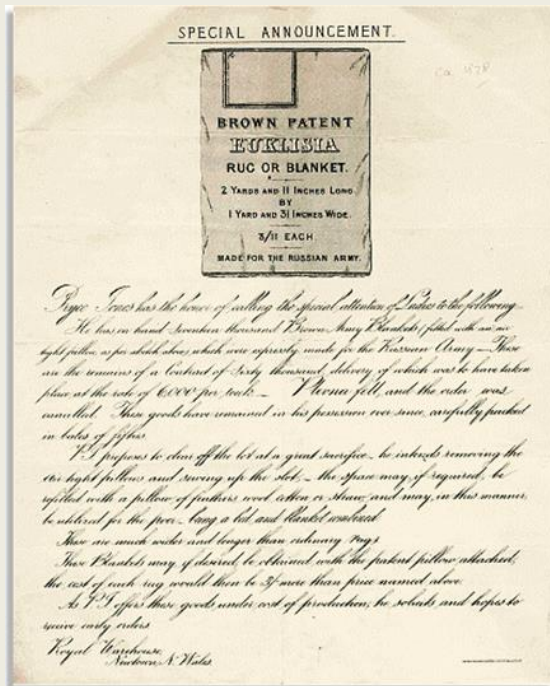 SPECIAL ANNOUNCEMENT.
ca 1878
BROWN PATENT
EUKLISIA
RUG OR BLANKET.
2 YARDS AND 11 INCHES LONG
BY
1 YARD AND 31 INCHES WIDE.
3/11 EACH
MADE FOR THE RUSSIAN ARMY.
Pryce Jones has the honor of calling the special attention of Ladies to the following
He has on hand Seventeen thousand Brown Army Blankets (fitted with an air
tight pillow, as per sketch above) which were expressly made for the Russian Army – These
are the remains of a contract of Sixty thousand, delivery of which was to have taken
place at the rate of 6,000 per week – Plevna fell, and the order was
cancelled. These goods have remained in his possession ever since, carefully packed
in bales of fifties
P.J proposes to clear off the lot at a great sacrifice – he intends removing the
air tight pillows and sewing up the slot – the space may, if required, be
refilled with a pillow of feathers wool cotton or straw, and may, in this manner,
be utilized for the poor – being a bed and blanket combined
These are much wider and longer than ordinary rugs
These Blankets may, if desired, be obtained with the patent pillow attached,
the cost of each rug would then be 3/- more than price named above.
As P.J offers these goods under cost of production, he solicits and hopes to
receive early orders
Royal Warehouse,
Newtown, N. Wales